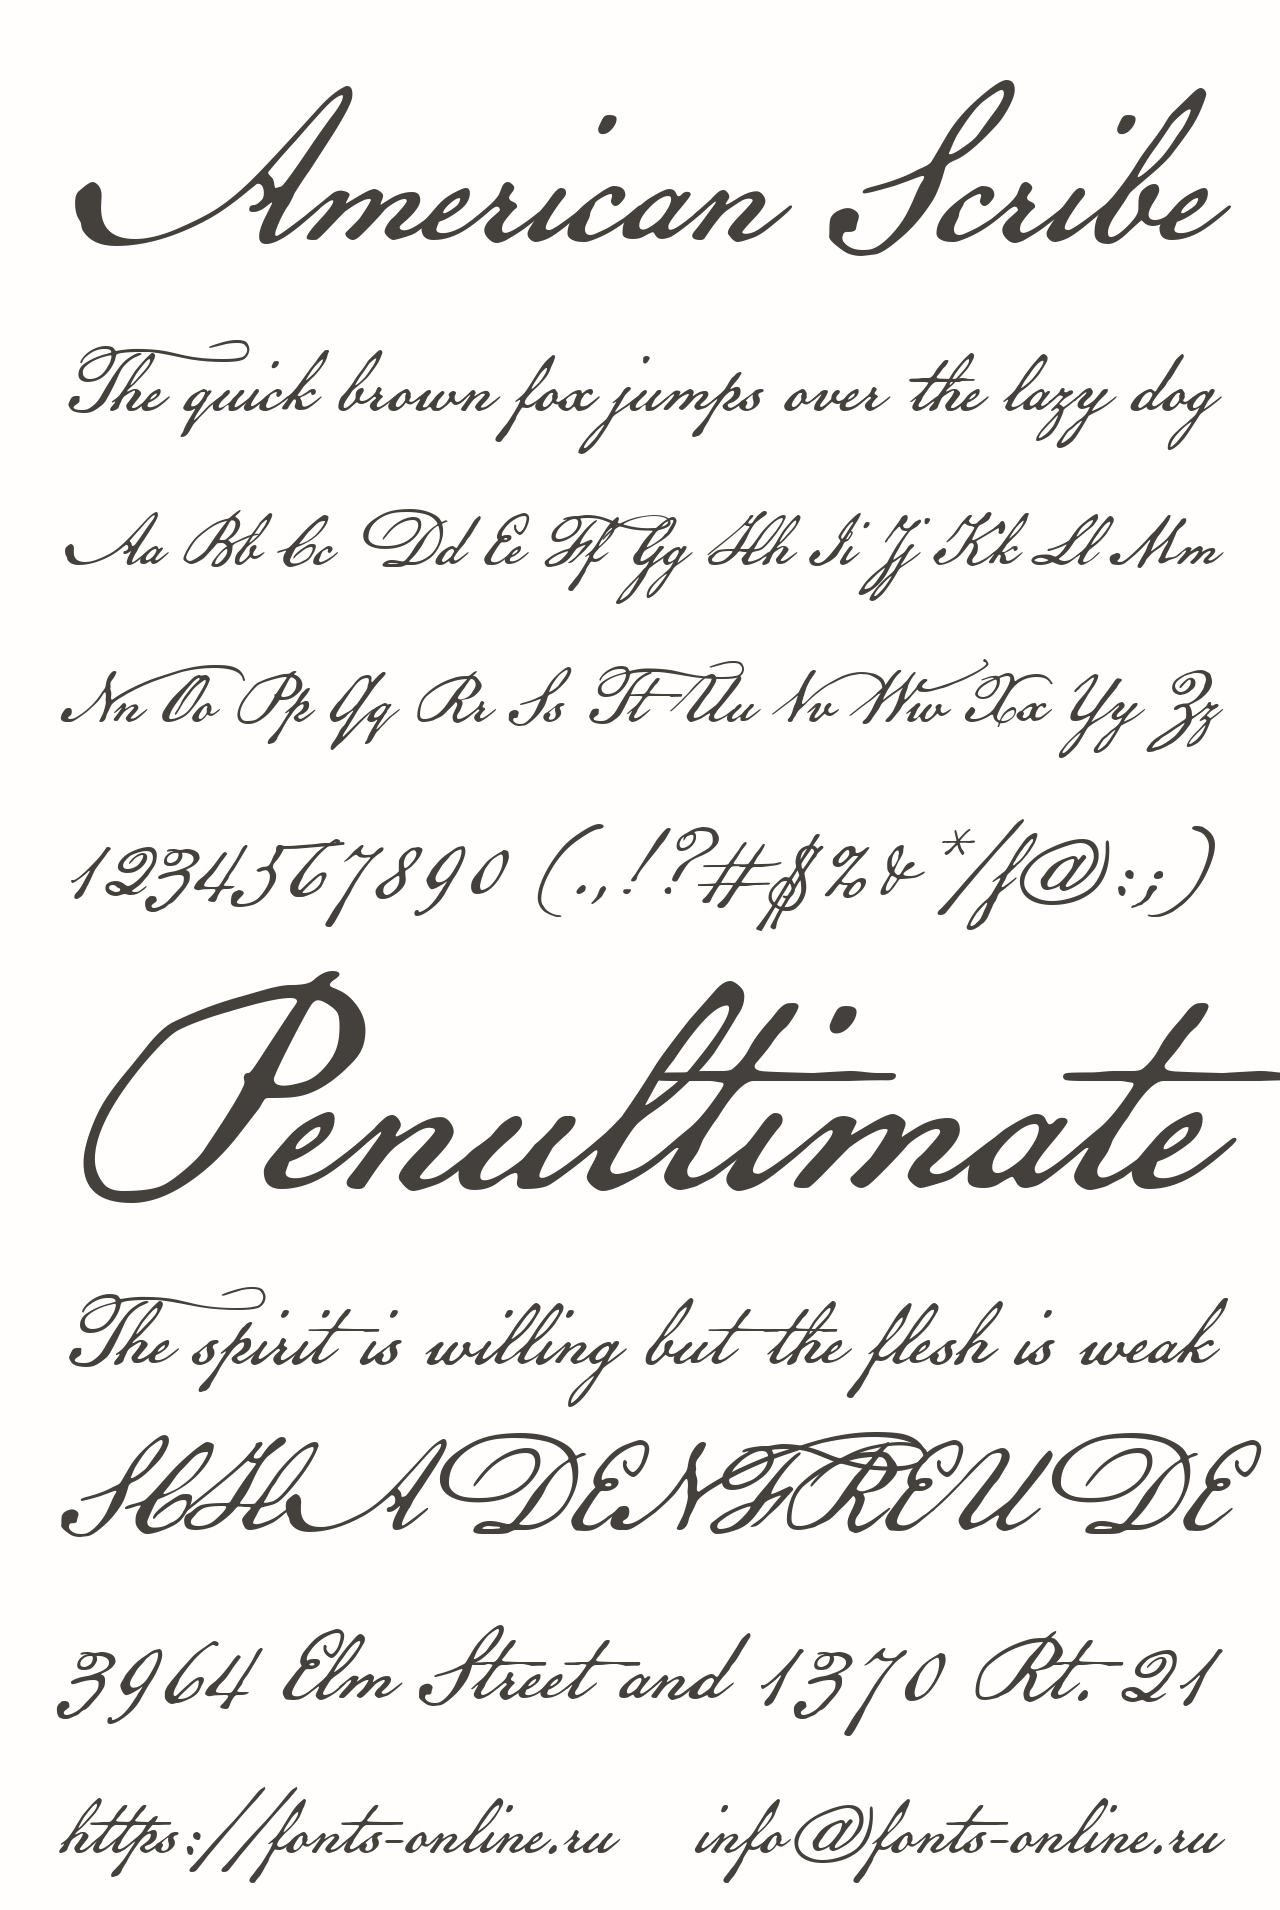 American Scribe
The quick brown fox jumps over the lazy dog
Aa Bb Cc Dd Ee Ff Gg Hh Ii Jj Kk Ll Mm
Nn Oo Pp Qq Rr Ss Tt Uu Vv Ww Xx Yy Zz
1234567890 (.,!?#$%&*/ſ@:;)
Penultimate
The spirit is willing but the flesh is weak
SCHADENFREUDE
3964 Elm Street and 1370 Rt. 21
https://fonts-online.ru info@fonts-online.ru